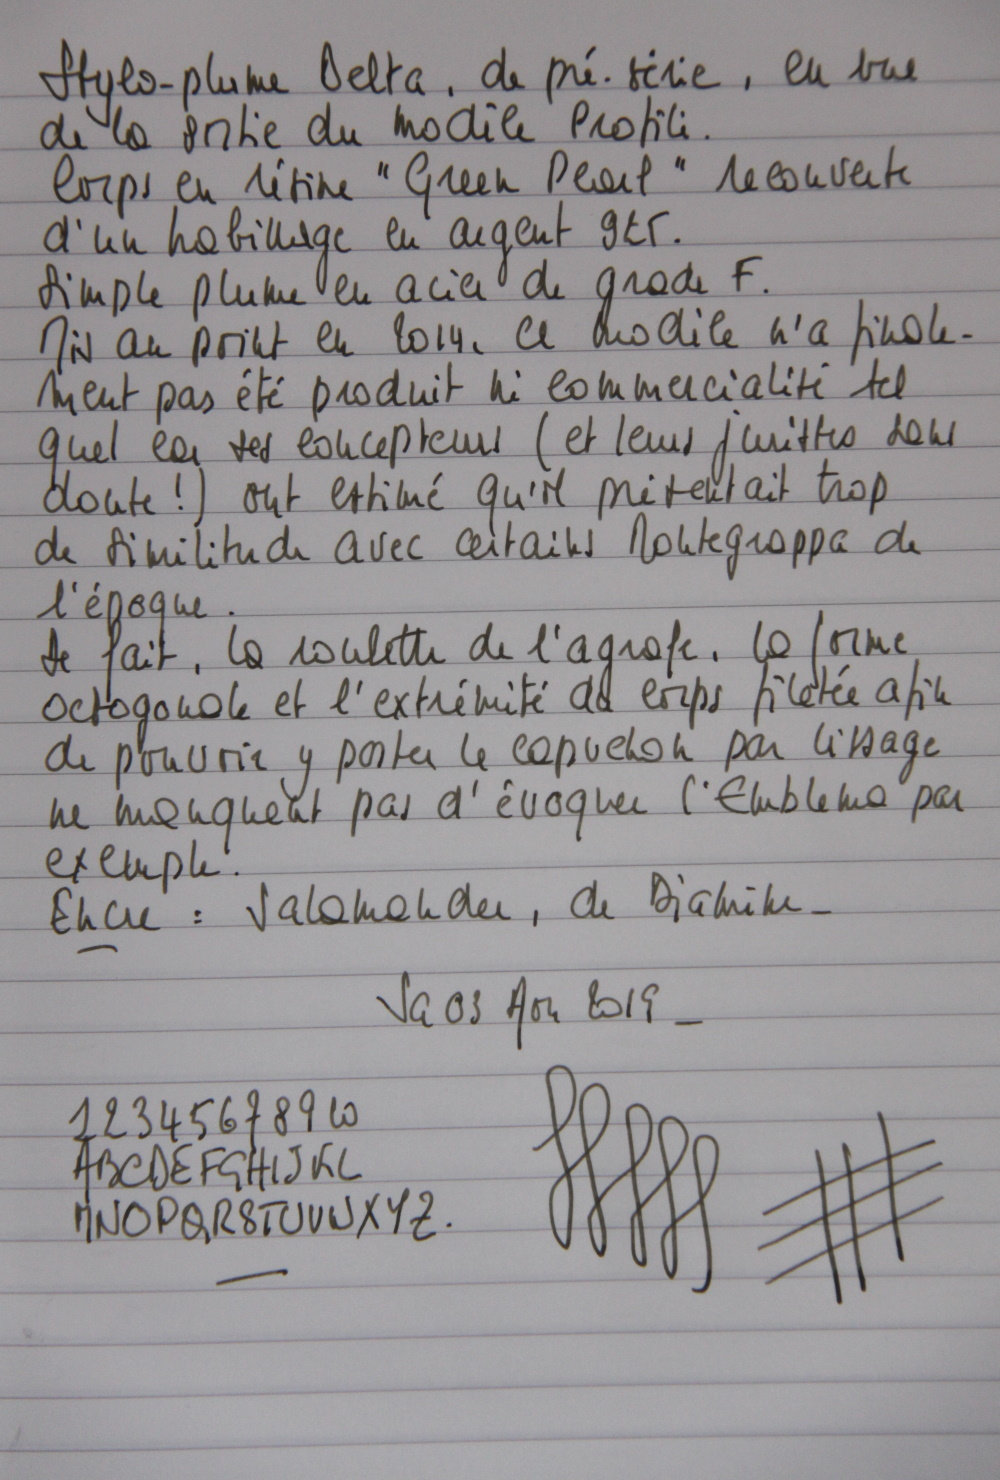 Stylo-plume Delta, de pré-série, en vue
de la sortie du modèle Profili.
Corps en résine "Green Pearl" recouverte
d'un habillage en argent 925.
Simple plume en acier de grade F.
Mis au point en 2014, ce modèle n'a finale-
ment pas été produit ni commercialisé tel
quel car ses concepteurs (et leurs juristes sans
doute!) ont estimé qu'il présentait trop
de similitude avec certains Montegrappa de
l'époque.
De fait, la roulette de l'agrafe, la forme
octogonale et l'extrémité du corps filetée afin
de pouvoir y poster le capuchon par vissage
ne manquent pas d'évoquer l'Emblema par
exemple.
Encre : Salamander, de Diamine_
Sa 03 Aou 2019_
1 2 3 4 5 6 7 8 9 10
ABCDEFGHIJKL
MNOPQRSTUVWXYZ.